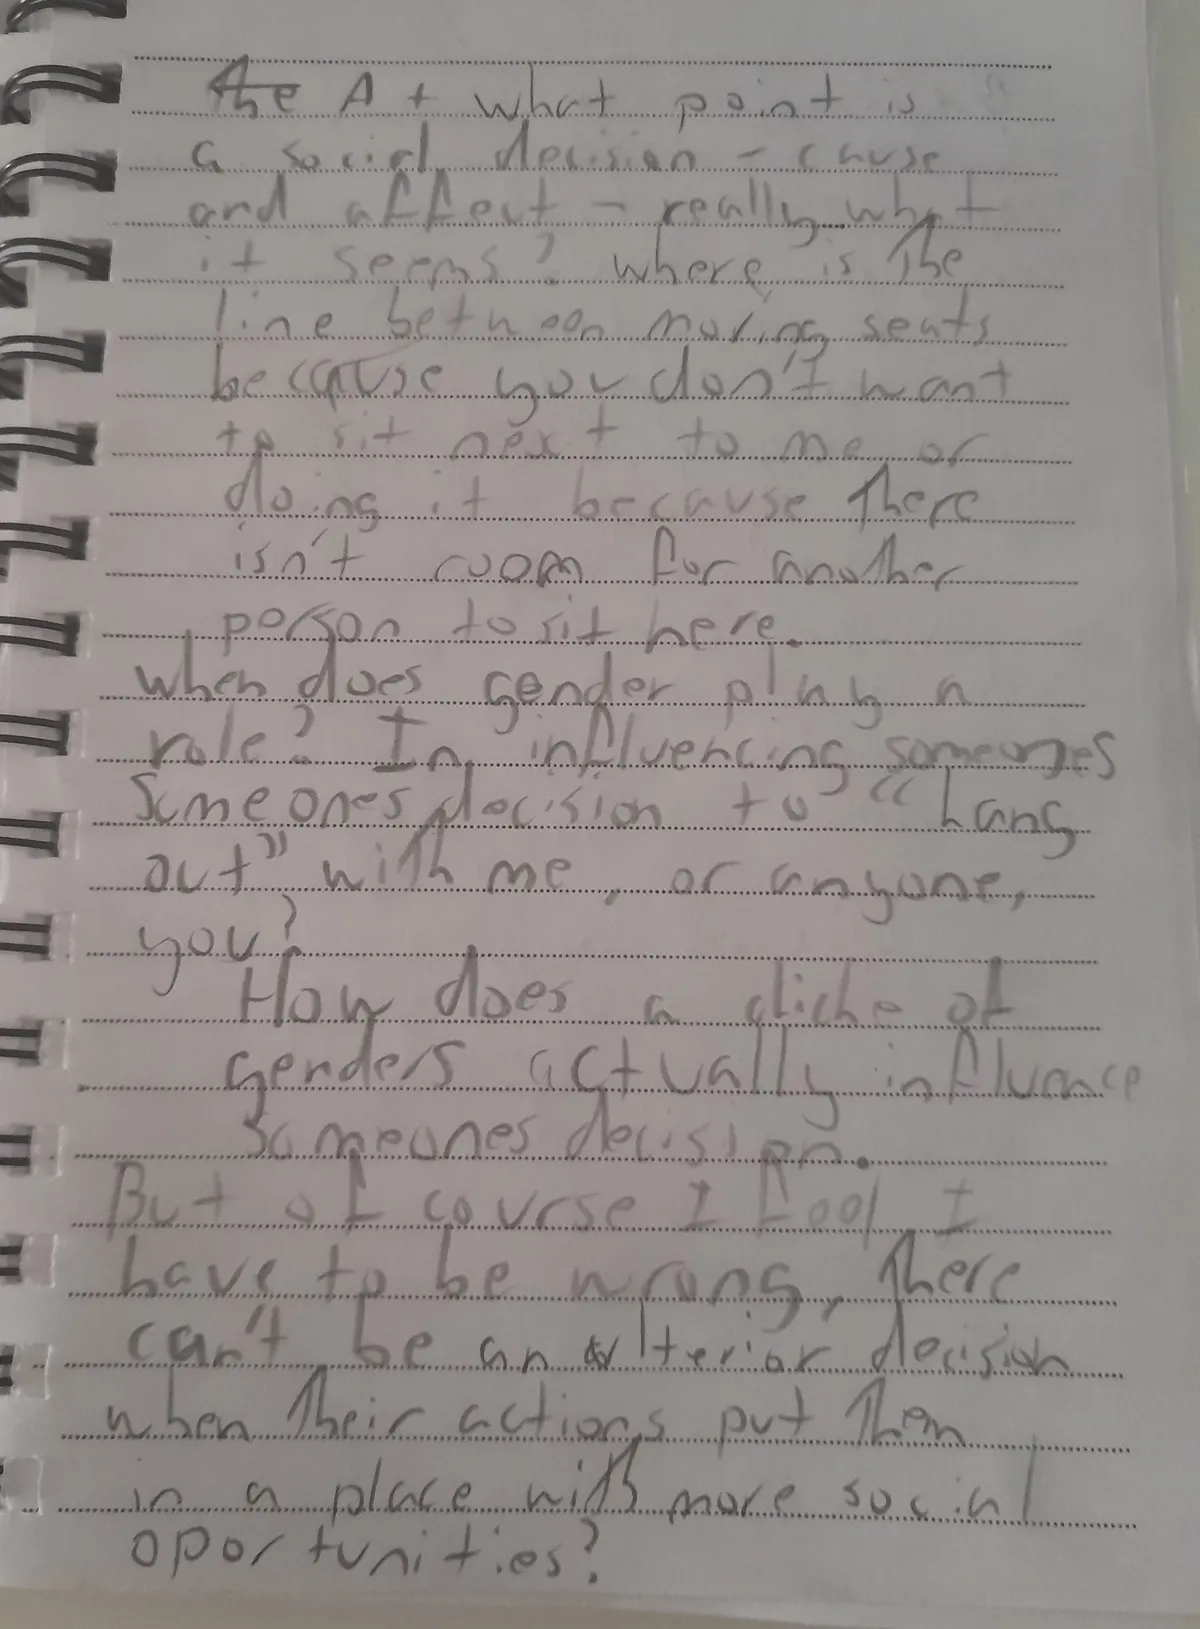 the At what point is
a social decision - cause
and affect - really what
it seems? where is the
line between moving seats
because you don't want
to sit next to me or
doing it because there
isn't room for another
person to sit here.
when does gender play a
role? In influencing someones
Someones decision to "hang
out" with me, or anyone,
you?
How does a cliche of
genders actually influence
someones decision.
But of course I feel I
have to be wrong, there
can't be an ulterior decision
when their actions put them
in a place with more social
oportunities?